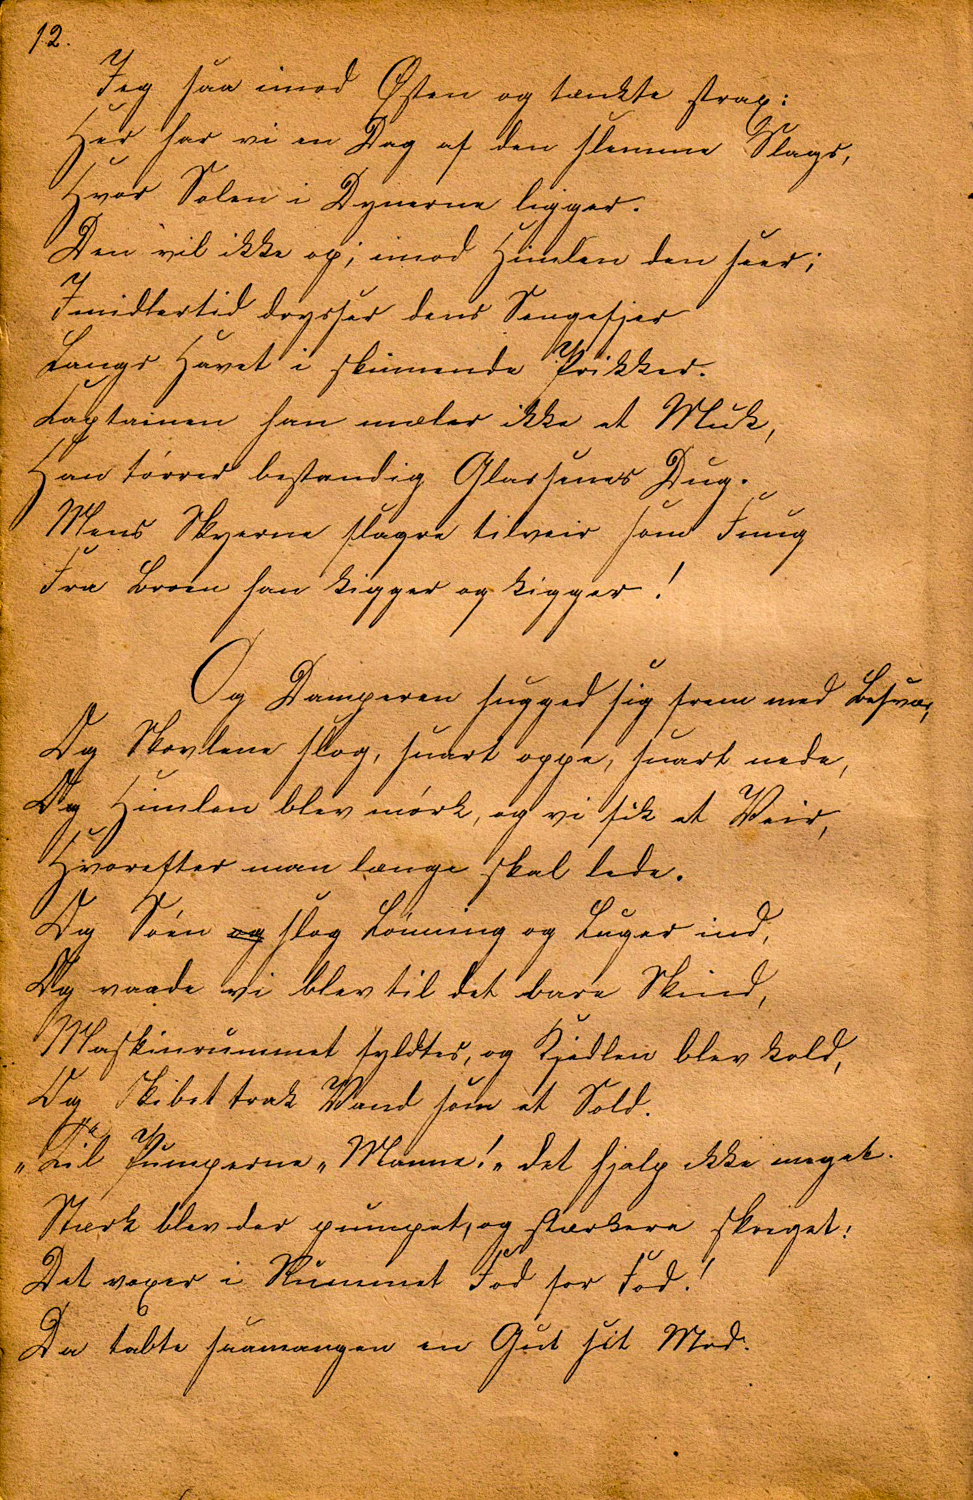 12.
Jeg saa imod Østen og tænkte strax:
Her har vi en Dag af den slemme Slags,
Hvor Solen i Dynerne ligger.
Den vil ikke op; imod Himlen den seer;
Imidlertid drysser dens Sengefjer
Langs Havet i skinnende Prikker.
Kaptainen han mæler ikke et Muk,
Han tørrer bestandig Glassenes Dug.
Mens Skyerne flagre tilveir som Fnug
Fra Broen han kigger og kigger!
Og Damperen hugged sig frem med Besvær,
Og Skovlene slog, snart oppe, snart nede,
Og Himlen blev mørk, og vi fik et Veir,
Hvorefter man længe skal lede.
Og Søen og slog Lønning og Luger ind,
Og vaade vi blev til det bare Skind,
Maskinrummet fyldtes, og Kjedlen blev kold,
Og Skibet trak Vand som et Sold.
„Til Pumperne„ Manne!„ det hjalp ikke meget.
Stærk blev der pumpet, og stærkere skreget:
Det voxer i Rummet Fod for Fod!
Da tabte saamangen en Gut sit Mod.